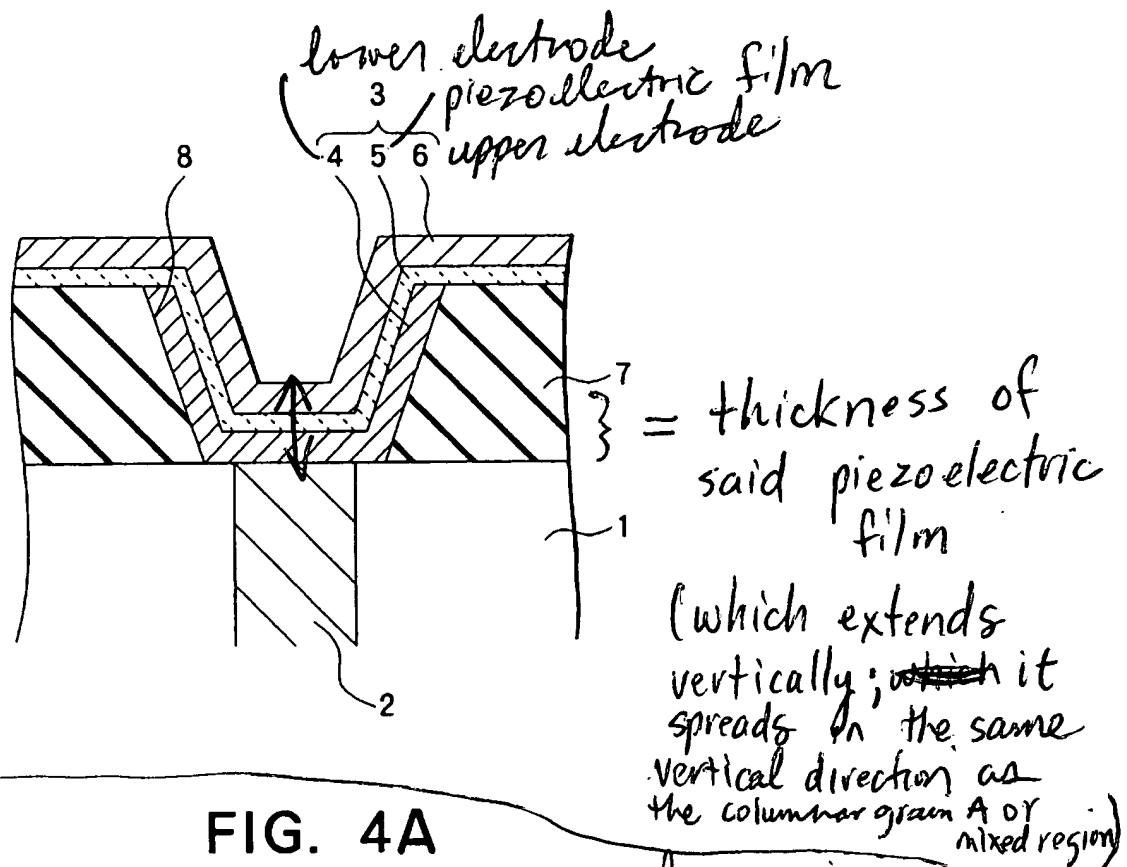 lower electrode
3 piezoelectric film
8 4 5 6 upper electrode
7
= thickness of
said piezoelectric
film
1
(which extends
vertically; it
spreads in the same
vertical direction as
the columnar grain A or
mixed region)
2
FIG. 4A